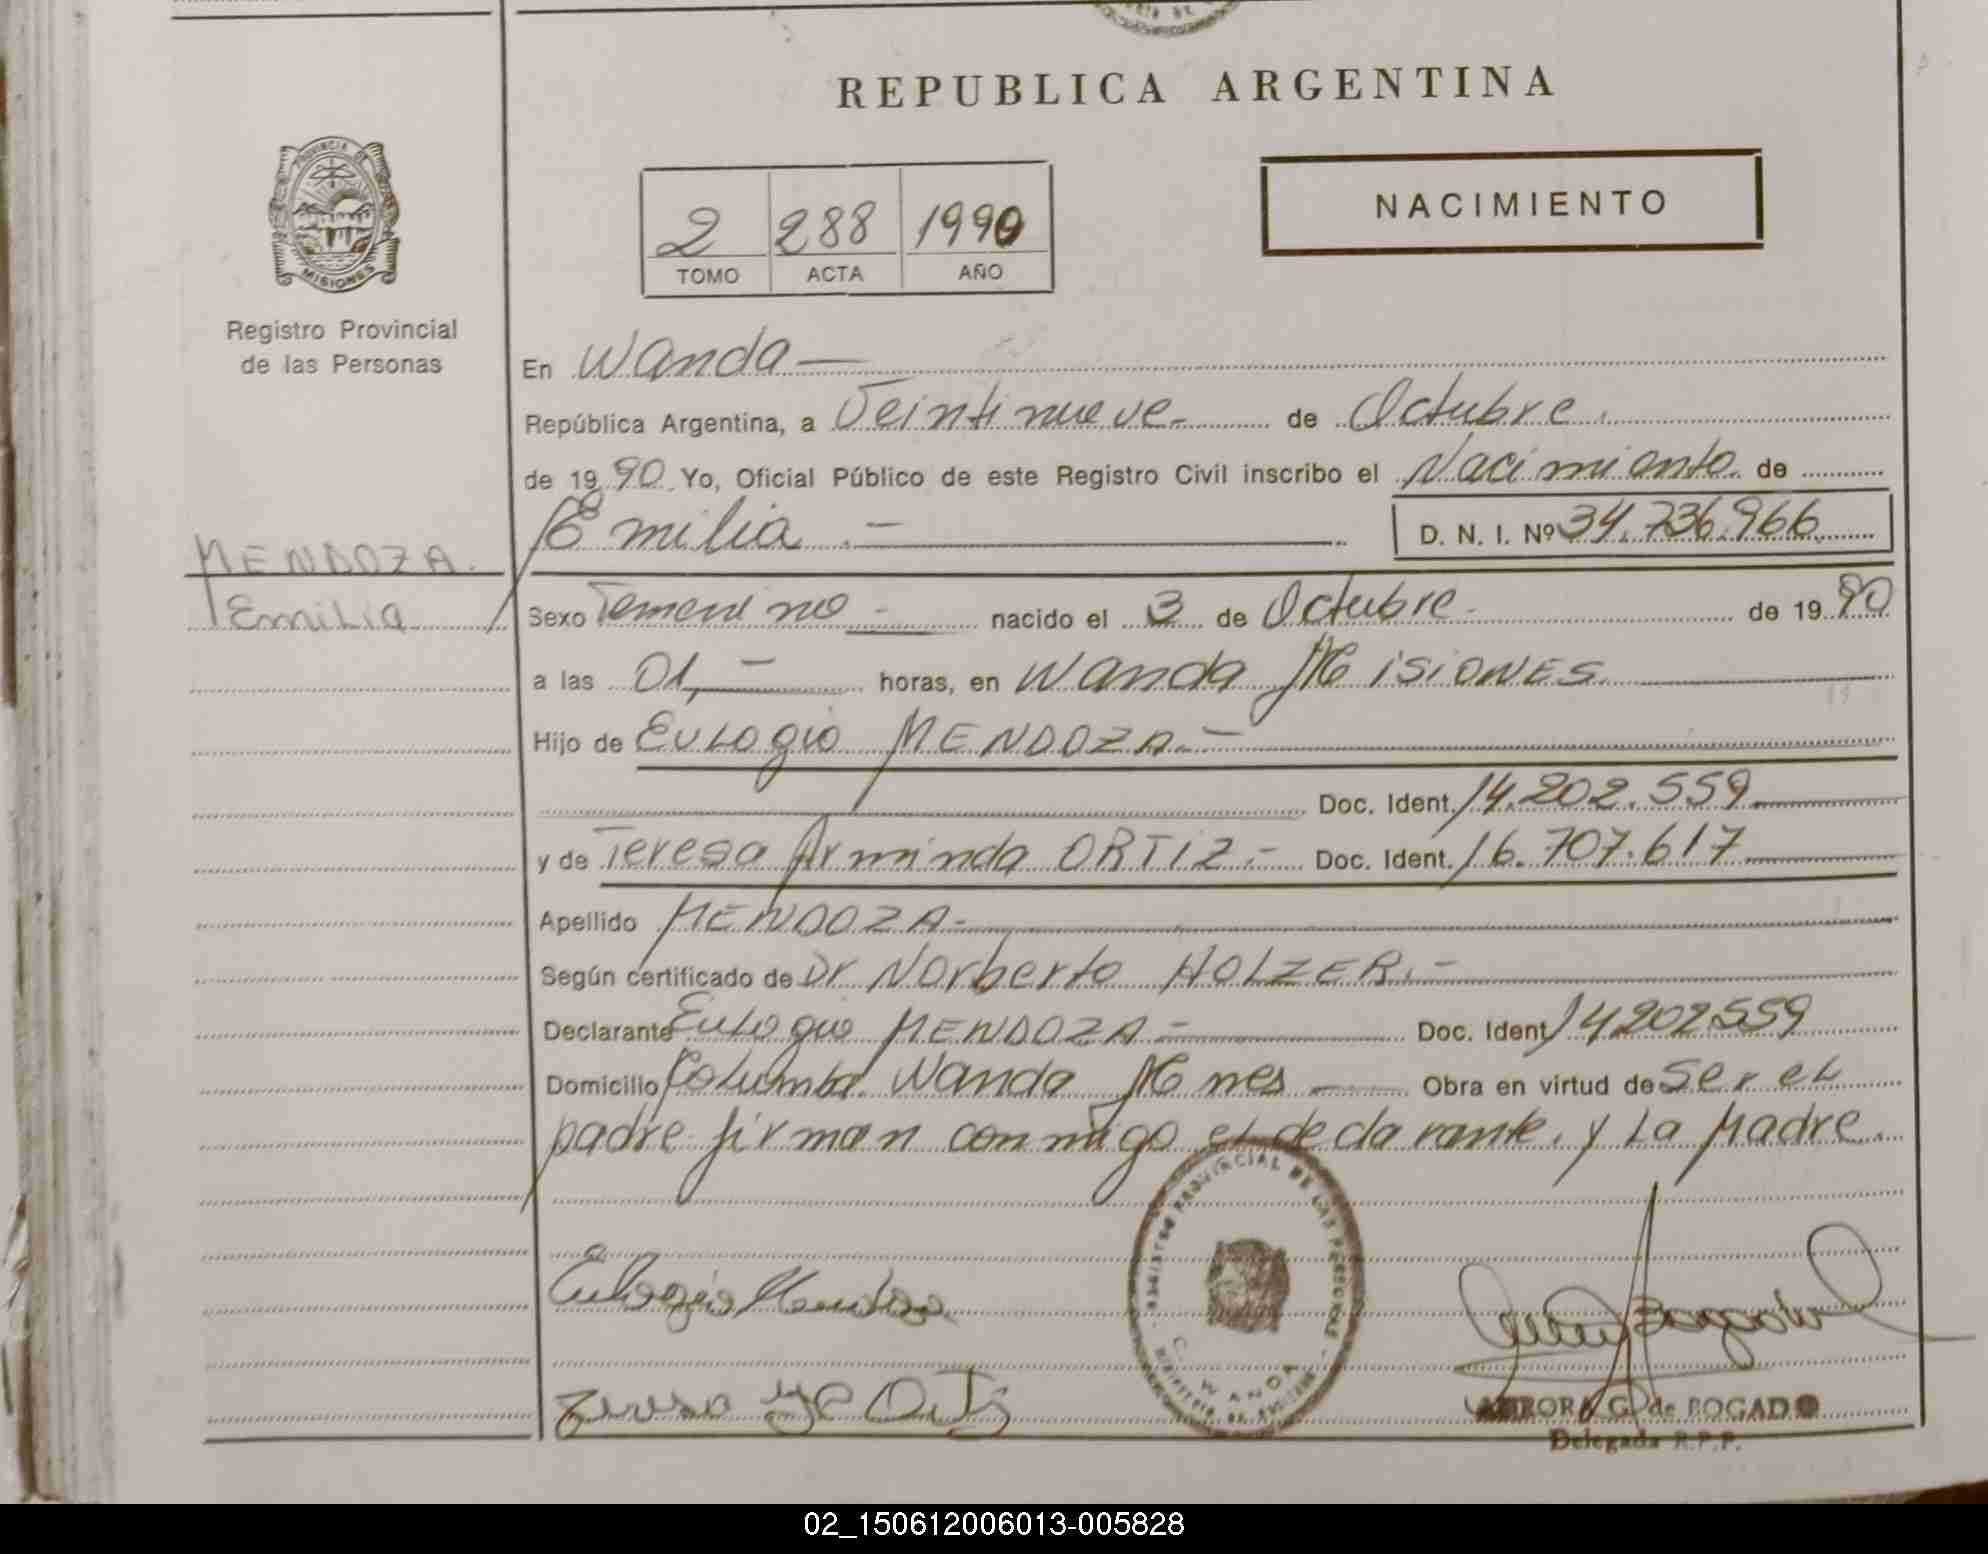 REPUBLICA ARGENTINA
PROVINCIA DE MISIONES
Registro Provincial
de las Personas
NACIMIENTO
2 288 1990
TOMO ACTA AÑO
En Wanda —
República Argentina, a Veintinueve.- de Octubre.
de 1990 Yo, Oficial Público de este Registro Civil inscribo el Nacimiento de
Emilia.—
D. N. I. Nº 34.736.966
MENDOZA.
Emilia
Sexo Femenino - nacido el 3 de Octubre - de 1990
a las 01,— horas, en Wanda MISIONES
Hijo de Eulogio MENDOZA.-
Doc. Ident. 14.202.559
y de Teresa Arminda ORTIZ.- Doc. Ident. 16.707.617
Apellido MENDOZA-
Según certificado de Dr Norberto HOLZER.-
Declarante Eulogio MENDOZA - Doc. Ident 14202559
Domicilio Wanda Mnes — Obra en virtud de Ser el
padre firman conmigo el declarante, y La Madre.
Eulogio Mendoza
Teresa Ortiz
REGISTRO PROVINCIAL DE LAS PERSONAS
WANDA
AURORA G. de BOGADO
Delegada R.P.P.
02_150612006013-005828